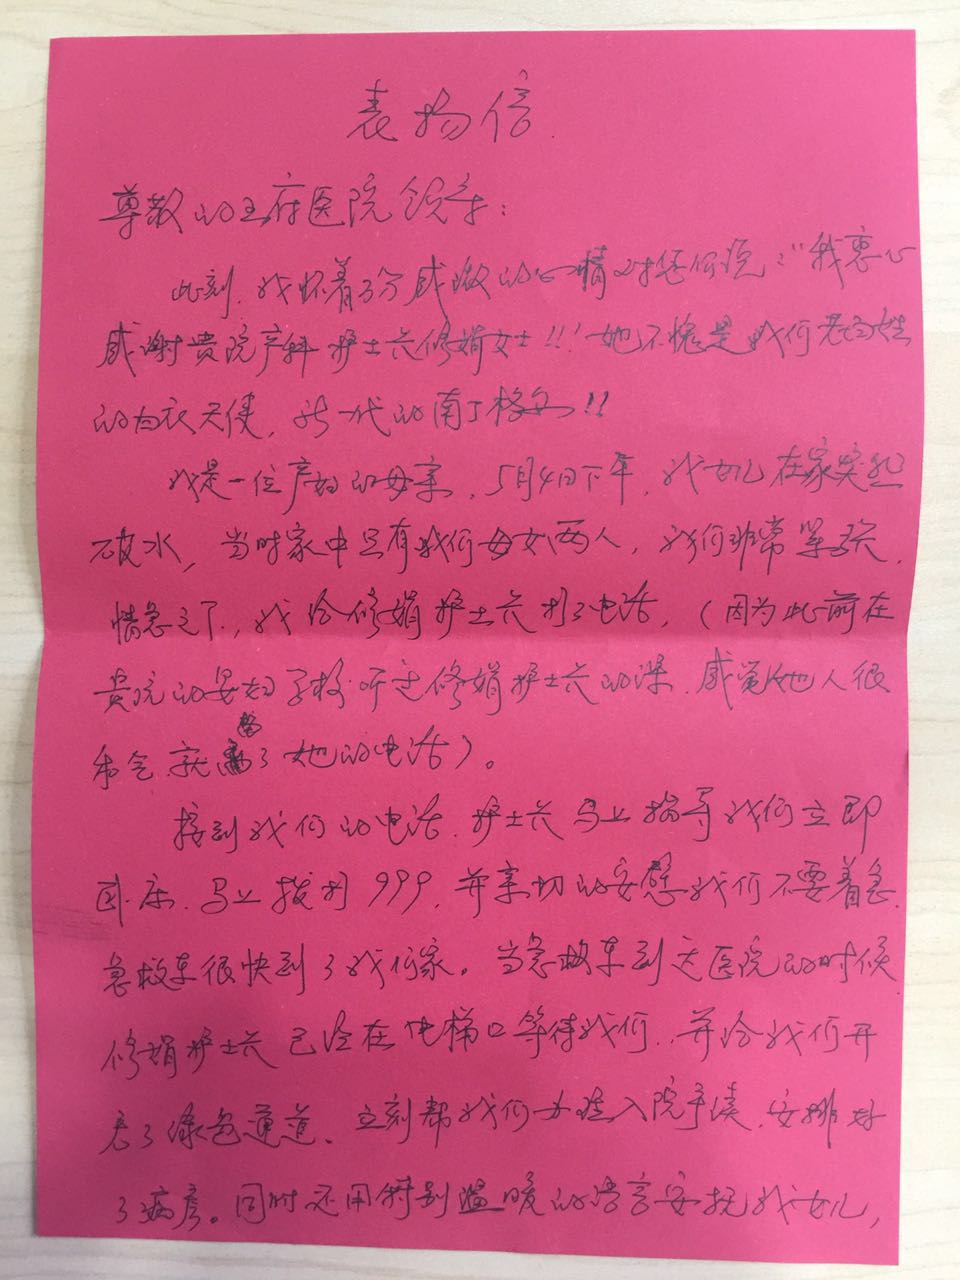 表扬信
尊敬的王府医院领导：
此刻，我怀着万分感激的心情对您们说："我衷心
感谢贵院产科护士长修娟女士!!!她不愧是我们老百姓
的白衣天使，新一代的南丁格尔!!
我是一位产妇的母亲，5月4日下午，我女儿在家突然
破水，当时家中只有我们母女两人，我们非常紧张，
情急之下，我给修娟护士长打了电话，（因为此前在
贵院的孕妇学校听过修娟护士长的课，感觉她人很
和气就留了她的电话）。
接到我们的电话，护士长马上指导我们立即
卧床，马上拨打999，并亲切的安慰我们不要着急，
急救车很快到了我们家。当急救车到达医院的时候
修娟护士长已经在电梯口等待我们，并给我们开
启了绿色通道，立刻帮我们办理入院手续，安排好
了病房。同时还用特别温暖的语言安抚我女儿，